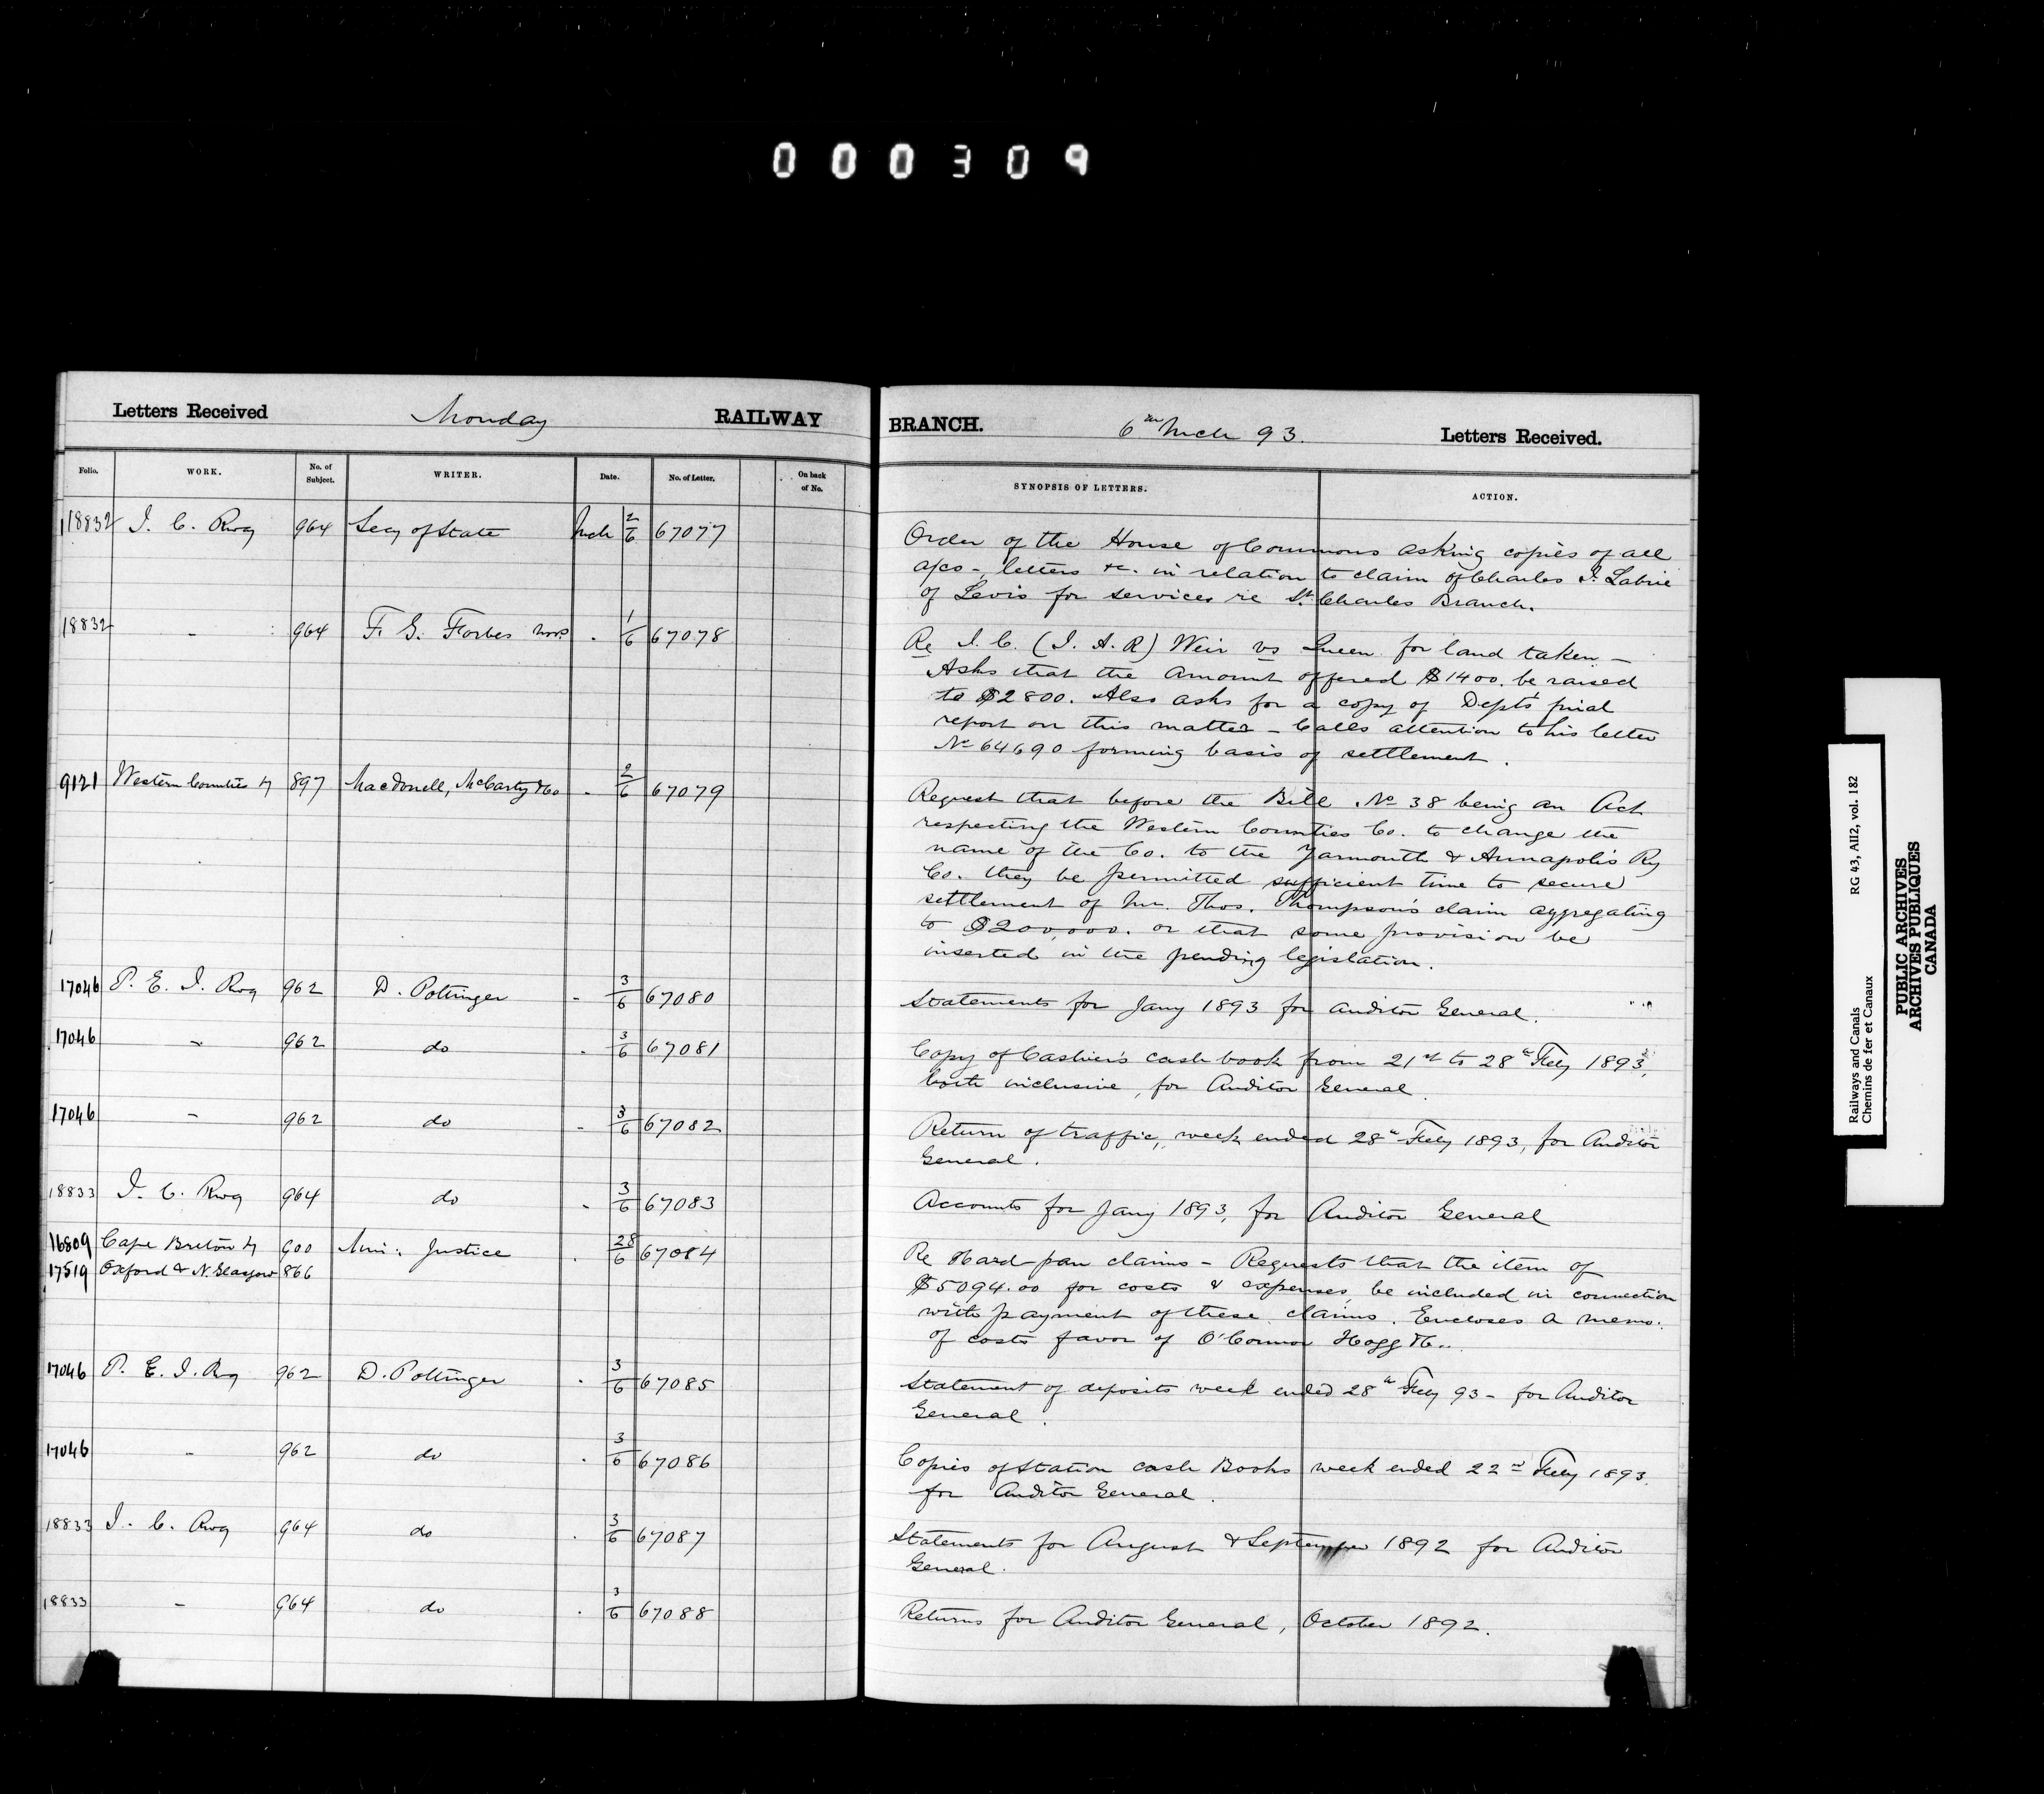 000309
Letters Received Monday RAILWAY BRANCH. 6th Mch 93. Letters Received.
Folio. WORK. No. of Subject. WRITER. Date. No. of Letter. On back of No. SYNOPSIS OF LETTERS. ACTION.
18832 I. C. Rwy 964 Secy of State Mch 2/6 67077 Order of the House of Commons asking copies of all
a/cs - letters &c. in relation to claim of Charles I. Labrie
of Levis for services re St. Charles Branch.
18832 - 964 F. G. Forbes . 1/6 67078 Re I. C. (I. A. R) Weir vs Queen for land taken -
Asks that the amount offered $1400. be raised
to $2800. Also asks for a copy of Depts
report on this matter - Calls attention to his letter
No 64690 forming basis of settlement.
9121 Western Counties Ry 897 Macdonell, McCarty & Co - 2/6 67079 Request that before the Bill No 38 being an Act
respecting the Western Counties Co. to change the
name of the Co. to the Yarmouth & Annapolis Ry
Co. they be permitted sufficient time to secure
settlement of Mr. Thos. Thompson's claim aggregating
to $200,000. or that some provision be
inserted in the pending legislation.
17046 P. E. I. Rwy 962 D. Pottinger - 3/6 67080 Statements for Jany 1893 for Auditor General.
17046 - 962 do . 3/6 67081 Copy of Cashier's cash book from 21st to 28th Feby 1893,
both inclusive, for Auditor General.
17046 - 962 do - 3/6 67082 Return of traffic, week ended 28th Feby 1893, for Auditor
General.
18833 I. C. Rwy 964 do - 3/6 67083 Accounts for Jany 1893, for Auditor General
16809 Cape Breton Ry 900 Min. Justice . 28/6 67084 Re Hard-pan claims - Requests that the item of
17519 Oxford & N. Glasgow 866
$5094.00 for costs & expenses, be included in connection
with payment of these claims. Encloses a memo:
of costs favor of O'Connor Hogg & Co.
17046 P. E. I. Rwy 962 D. Pottinger . 3/6 67085 Statement of deposits week ended 28th Feby 93 - for Auditor
General.
17046 - 962 do . 3/6 67086 Copies of Station cash Books week ended 22nd Feby 1893.
for Auditor General.
18833 I. C. Rwy 964 do . 3/6 67087 Statements for August & September 1892 for Auditor
General.
18833 - 964 do . 3/6 67088 Returns for Auditor General, October 1892.
Railways and Canals RG 43, AII2, vol. 182
Chemins de fer et Canaux
PUBLIC ARCHIVES
ARCHIVES PUBLIQUES
CANADA